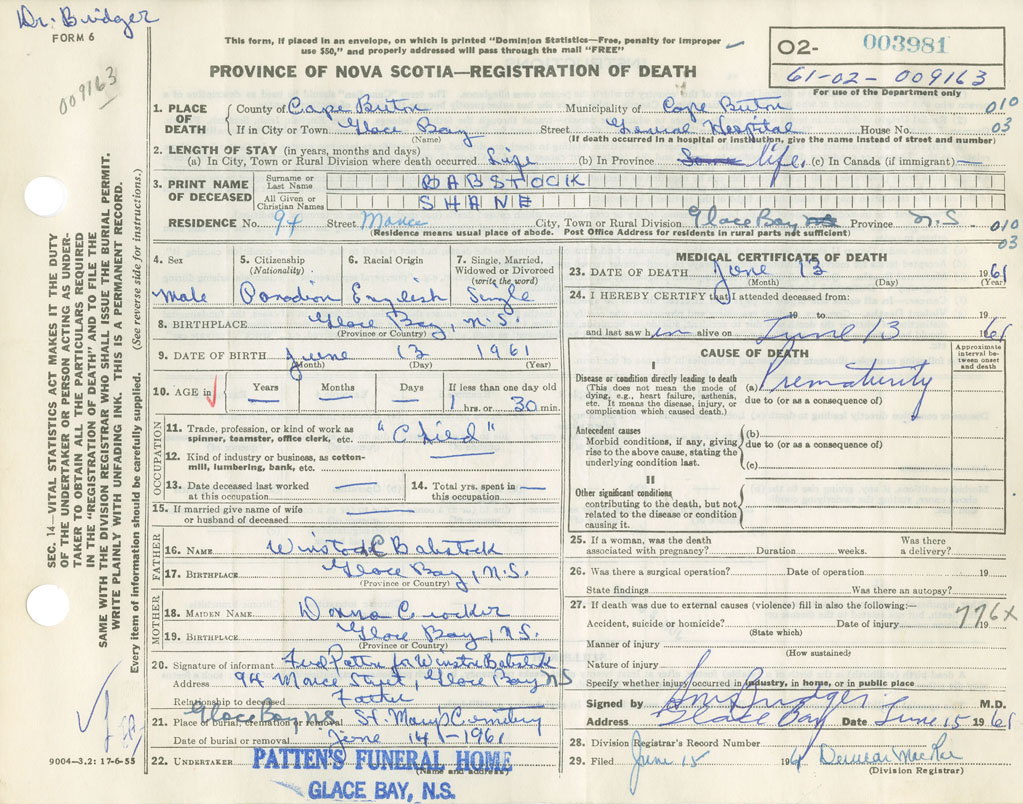 Dr. Bridger
FORM 6
009163
This form, if placed in an envelope, on which is printed "Dominion Statistics—Free, penalty for improper
use $50," and properly addressed will pass through the mail "FREE"
PROVINCE OF NOVA SCOTIA—REGISTRATION OF DEATH
O2- 003981
61-02-009163
For use of the Department only
1. PLACE OF DEATH
County of Cape Breton Municipality of Cape Breton 010
If in City or Town Glace Bay Street General Hospital House No. 03
(Name) (If death occurred in a hospital or institution, give the name instead of street and number)
2. LENGTH OF STAY (in years, months and days)
(a) In City, Town or Rural Division where death occurred Life (b) In Province life (c) In Canada (if immigrant) —
3. PRINT NAME OF DECEASED
Surname or Last Name BABSTOCK
All Given or Christian Names SHANE
RESIDENCE No. 94 Street City, Town or Rural Division Glace Bay Province N.S 010
(Residence means usual place of abode. Post Office Address for residents in rural parts not sufficient) 03
4. Sex
Male
5. Citizenship
(Nationality)
Canadian
6. Racial Origin
English
7. Single, Married,
Widowed or Divorced
(write the word)
Single
8. BIRTHPLACE Glace Bay, N.S.
(Province or Country)
9. DATE OF BIRTH June 13 1961
(Month) (Day) (Year)
10. AGE in
Years —
Months —
Days —
If less than one day old
1 hrs. or 30 min.
OCCUPATION
11. Trade, profession, or kind of work as
spinner, teamster, office clerk, etc. "Child"
12. Kind of industry or business, as cotton-
mill, lumbering, bank, etc. —
13. Date deceased last worked
at this occupation —
14. Total yrs. spent in
this occupation —
15. If married give name of wife
or husband of deceased —
FATHER
16. NAME Babstock
17. BIRTHPLACE Glace Bay, N.S.
(Province or Country)
MOTHER
18. MAIDEN NAME Donna Crocker
19. BIRTHPLACE Glace Bay, N.S.
(Province or Country)
20. Signature of informant Fred Patten for Winston Babstock
Address 94 Street, Glace Bay NS
Relationship to deceased Father
21. Place of burial, cremation or removal Glace Bay NS St. Mary's Cemetery
Date of burial or removal June 14-1961
22. UNDERTAKER PATTEN'S FUNERAL HOME
(Name and address)
GLACE BAY, N.S.
MEDICAL CERTIFICATE OF DEATH
23. DATE OF DEATH June 13 1961
(Month) (Day) (Year)
24. I HEREBY CERTIFY that I attended deceased from:
19 to 19
and last saw him alive on June 13 1961
CAUSE OF DEATH
Approximate
interval be-
tween onset
and death
I
Disease or condition directly leading to death
(This does not mean the mode of
dying, e.g., heart failure, asthenia,
etc. It means the disease, injury, or
complication which caused death.)
(a) Prematurity
due to (or as a consequence of)
Antecedent causes
Morbid conditions, if any, giving
rise to the above cause, stating the
underlying condition last.
(b)
due to (or as a consequence of)
(c)
II
Other significant conditions
contributing to the death, but not
related to the disease or condition
causing it.
25. If a woman, was the death Was there
associated with pregnancy? Duration weeks. a delivery?
26. Was there a surgical operation? Date of operation 19
State findings Was there an autopsy?
27. If death was due to external causes (violence) fill in also the following:—
Accident, suicide or homicide? Date of injury 19
776X
(State which)
Manner of injury
(How sustained)
Nature of injury
Specify whether injury occurred in industry, in home, or in public place
Signed by Bridger M.D.
Address Glace Bay Date June 15 1961
28. Division Registrar's Record Number
29. Filed June 15 1961
(Division Registrar)
SEC. 14—VITAL STATISTICS ACT MAKES IT THE DUTY
OF THE UNDERTAKER OR PERSON ACTING AS UNDER-
TAKER TO OBTAIN ALL THE PARTICULARS REQUIRED
IN THE "REGISTRATION OF DEATH" AND TO FILE THE
SAME WITH THE DIVISION REGISTRAR WHO SHALL ISSUE THE BURIAL PERMIT.
WRITE PLAINLY WITH UNFADING INK. THIS IS A PERMANENT RECORD.
Every item of information should be carefully supplied. (See reverse side for instructions.)
9004—3.2: 17-6-55